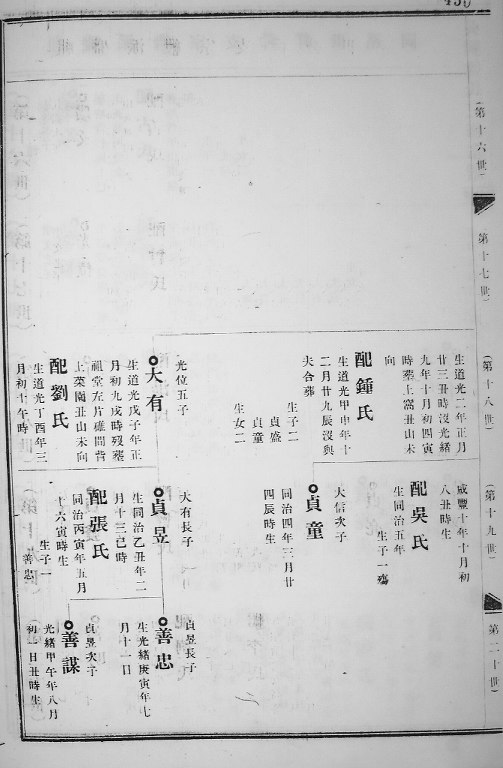 430
(第十六世)
(第十七世)
(第十八世)
(第十九世)
(第二十世)
生道光二年正月
廿三丑時沒光緒
九年十月初四寅
時葬上窩丑山未
向
配鍾氏
生道光甲申年十
二月廿九辰沒與
夫合葬
生子二
貞盛
貞童
生女二
光位五子
大有
生道光戊子年正
月初九戌時歿葬
祖堂左片礶間背
上菜園丑山未向
配劉氏
生道光丁酉年三
月初十午時
咸豐十年十月初
八丑時生
配吳氏
生同治五年
生子一殤
大信次子
貞童
同治四年三月廿
四辰時生
大有長子
貞昱
生同治乙丑年二
月十三巳時
配張氏
同治丙寅年五月
十六寅時生
生子一
善忠
貞昱長子
善忠
生光緒庚寅年七
月十一日
貞昱次子
善謀
光緒甲午年八月
初一日丑時生